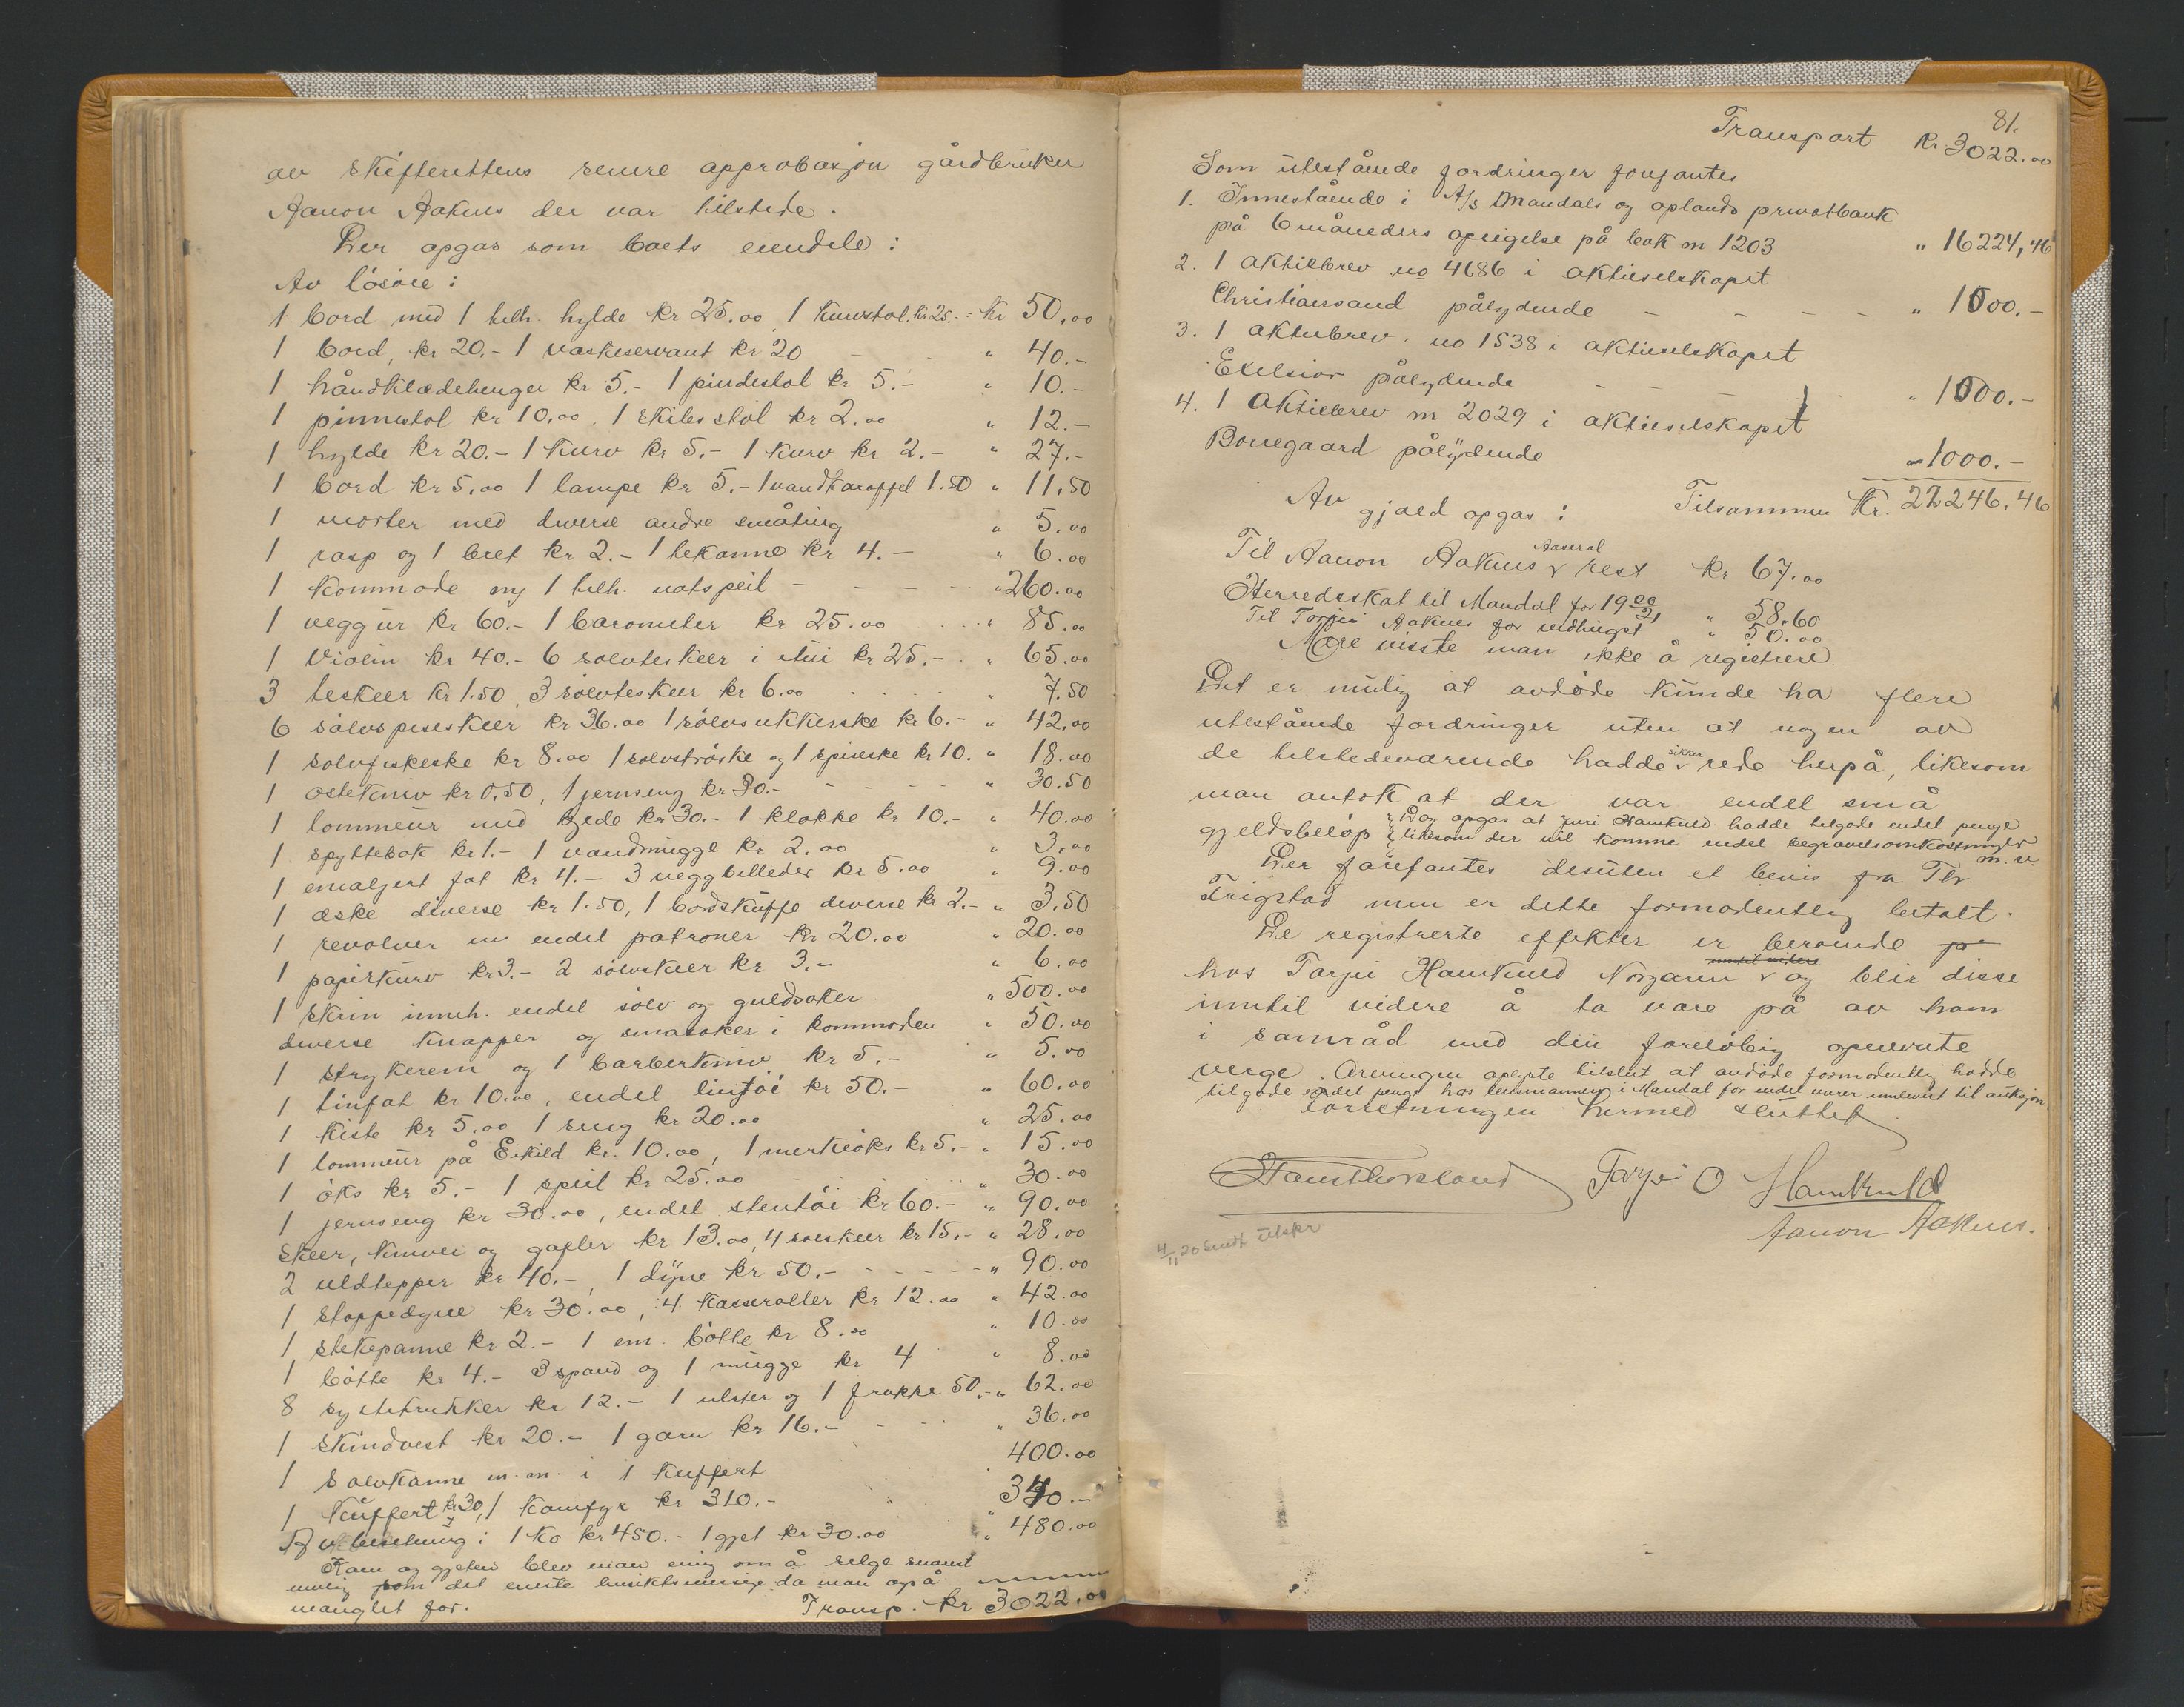 av skifterettens senere approbasjon gårdbruker
Aanon Aaknes der var tilstede.
Der opgas som boets eiendele:
Av løsøre:
1 bord med 1 tilh. hylde kr 25.00 1 kurvstol kr 25.- = kr 50.00
1 bord, kr 20.- 1 vaskeservant kr 20 - " 40.-
1 håndklædehenger kr 5.- 1 pindestol kr 5.- " 10.-
1 pinnestol kr 10.00, 1 skibsstol kr 2.00 " 12.-
1 hylde kr 20.- 1 kurv kr 5.- 1 kurv kr 2.- " 27.-
1 bord kr 5.00 1 lampe kr 5.- 1 vandkaraffel 1.50 " 11.50
1 morter med diverse andre småting " 5.00
1 rasp og 1 bret kr 2.- 1 tekanne kr 4.- " 6.00
1 kommode og 1 tilh. natspeil - - - " 260.00
1 veggur kr 60.- 1 barometer kr 25.00 " 85.00
1 Violin kr 40.- 6 sølvteskeer i etui kr 25.- " 65.00
3 teskeer kr 1.50, 3 sølvteskeer kr 6.00 " 7.50
6 sølvspiseskeer kr 36.00 1 sølvsukkerske kr 6.- " 42.00
1 sølvfiskeske kr 8.00 1 sølvstrøske og 1 spiseske kr 10. " 18.00
1 ostekniv kr 0.50, 1 jernseng kr 30.- " 30.50
1 lommeur med kjede kr 30.- 1 klokke kr 10.- " 40.00
1 spyttebak kr 1.- 1 vandmugge kr 2.00 " 3.00
1 emaljert fat kr 4.- 3 veggbilleder kr 5.00 " 9.00
1 æske diverse kr 1.50, 1 bordskuffe diverse kr 2.- " 3.50
1 revolver m endel patroner kr 20.00 " 20.00
1 papirkurv kr 3.- 2 sølvskeer kr 3.- " 6.00
1 skrin inneh. endel sølv og guldsaker " 500.00
diverse knapper og småsaker i kommoden " 50.00
1 strykerem og 1 barberkniv kr 5.- " 5.00
1 tinfat kr 10.00, endel lintøi kr 50.- " 60.00
1 kiste kr 5.00 1 seng kr 20.00 " 25.00
1 lommeur på Eikild kr. 10.00, 1 merkeøks kr 5.- " 15.00
1 øks kr 5.- 1 speil kr 25.00 " 30.00
1 jernseng kr 30.00, endel stentøi kr 60.- " 90.00
Skeer, kniver og gafler kr 13.00, 4 sølvskeer kr 15.- " 28.00
2 uldtepper kr 40.-, 1 dyne kr 50.- - - - - " 90.00
1 stoppedyne kr 30.00, 4 kasseroller kr 12.00 " 42.00
1 stekepanne kr 2.- 1 em. bøtte kr 8.00 " 10.00
1 bøtte kr 4.- 3 spand og 1 mugge kr 4 " 8.00
8 syltekrukker kr 12.- 1 ulster og 1 frakke 50.- " 62.00
1 skindvest kr 20.- 1 garn kr 16.- " 36.00
1 sølvkanne m.m. i 1 kuffert 400.00
1 kuffert kr 30, 1 komfyr kr 310.- " 340.-
Av besetning: 1 ko kr 450.- 1 gjet kr 30.00 " 480.00
Koen og gjeten blev man enig om å selge snarest
mulig som det eneste hensiktsmessige da man også
manglet for. Transp. kr 3022.00
81.
Transport kr. 3022.00
Som utestående fordringer forefantes
1. Innestående i A/s Mandals og oplands privatbank
på 6 måneders opsigelse på bok nr 1203 " 16224,46
2. 1 aktiebrev no 4686 i aktieselskapet
Christianssand pålydende - - - - " 1000.-
3. 1 aktiebrev no 1538 i aktieselskapet
Exelsior pålydende - - " 1000.-
4. 1 aktiebrev nr 2029 i aktieselskapet
Borregaard pålydende " 1000.-
Tilsammen Kr. 22246.46
Av gjæld opgas:
Til Aanon Aaknes Aaseral rest kr 67.00
Herredsskat til Mandal for 1920/21 " 58.60
Til Torjus Aaknes for vedhugst " 50.00
Mere visste man ikke å registrere.
Det er mulig at avdøde kunde ha flere
utestående fordringer uten at nogen av
de tilstedeværende hadde sikker rede herpå, likesom
man antok at der var endel små
gjeldsbeløp Dog opgas at Jens Hamkuld hadde tilgode endel penge
likesom der vil komme endel begravelsomkostninger
m.v.
Der forefantes desuten et bevis fra Th.
Trigstad men er dette formodentlig betalt.
De registrerte effekter er beroende
hos Tarjei Hamkuld Norgaren og blir disse
inntil videre
inntil videre å ta vare på av ham
i samråd med den foreløbig opnevnte
verge. Arvingen opgte tilslut at avdøde formodentlig hadde
tilgode endel penge hos lensmannen i Mandal for endel varer innlevert til auksjon.
Forretningen hermed sluttet
Tarjei O Hamkuld
Aanon Aaknes.
4/11 20 Sendt utskr.